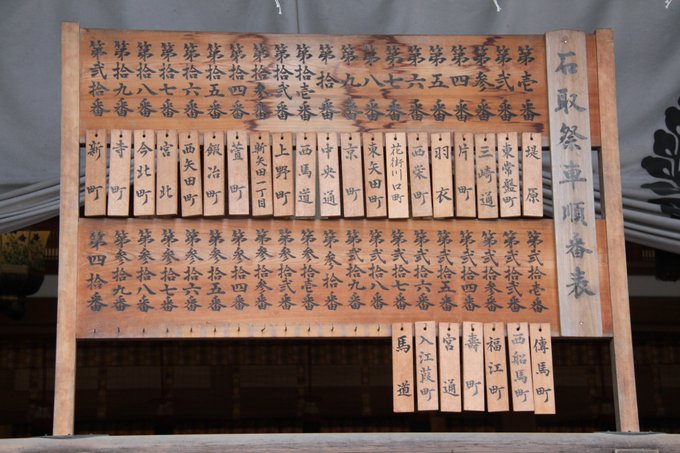 石取祭車順番表
第壱番
第弐番
第参番
第四番
第五番
第六番
第七番
第八番
第九番
第拾番
第拾壱番
第拾弐番
第拾参番
第拾四番
第拾五番
第拾六番
第拾七番
第拾八番
第拾九番
第弐拾番
堤原
東常盤町
三崎通
片町
羽衣
西栄町
花街川口町
東矢田町
京町
中央通
西馬道
上野町
新矢田一丁目
萱町
鍛冶町
西矢田町
宮北
今北町
寺町
新町
第弐拾壱番
第弐拾弐番
第弐拾参番
第弐拾四番
第弐拾五番
第弐拾六番
第弐拾七番
第弐拾八番
第弐拾九番
第参拾番
第参拾壱番
第参拾弐番
第参拾参番
第参拾四番
第参拾五番
第参拾六番
第参拾七番
第参拾八番
第参拾九番
第四拾番
傳馬町
西船馬町
福江町
壽町
宮通
入江葭町
馬道